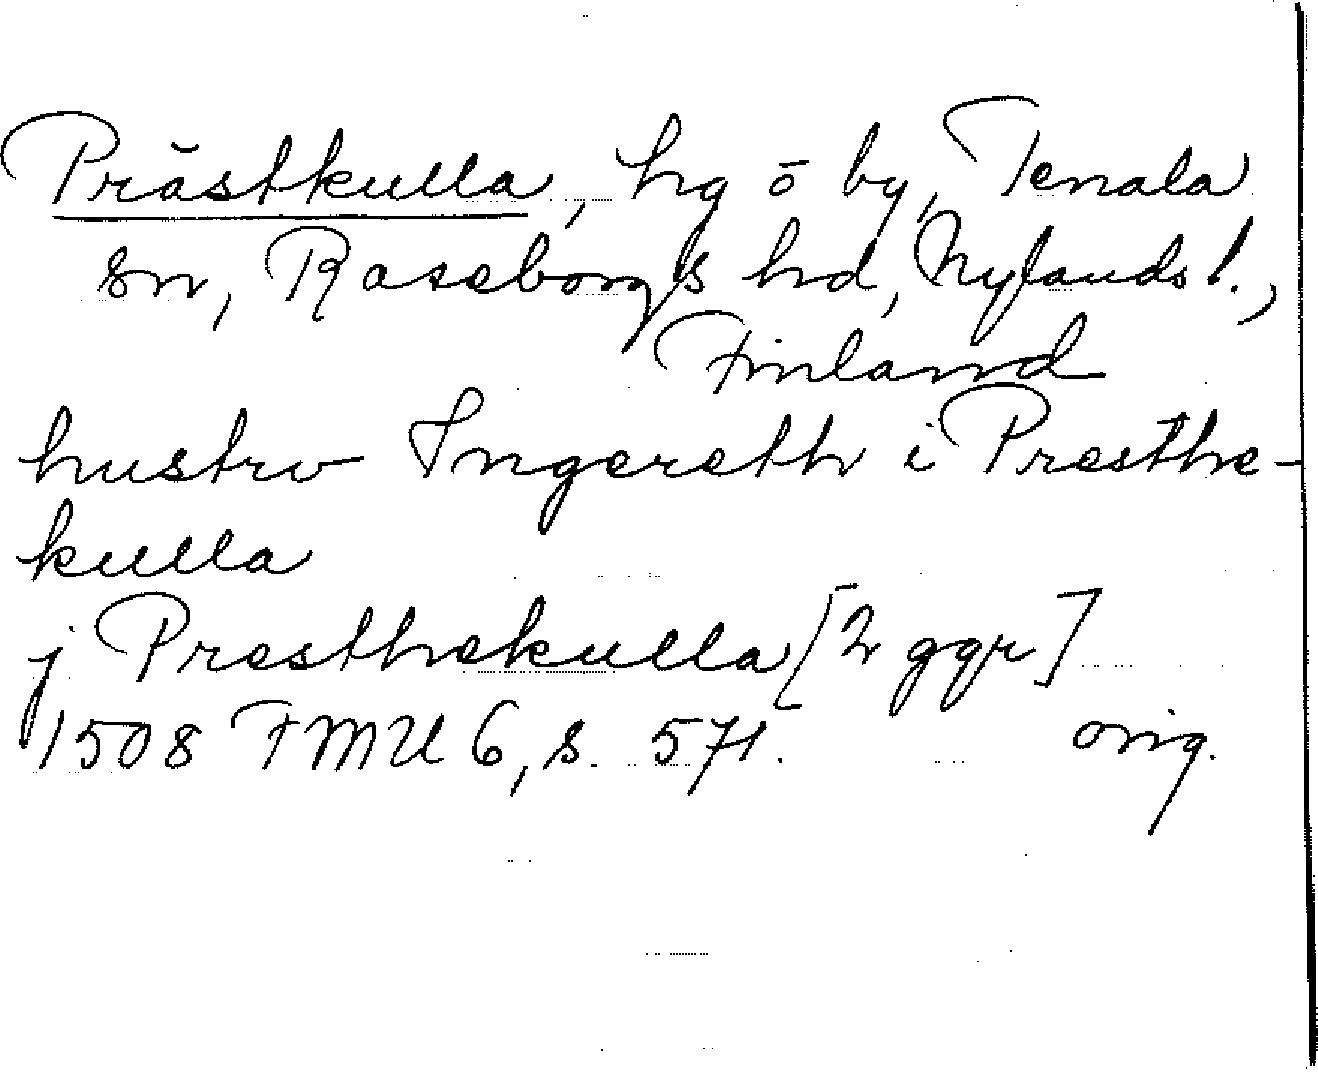 Prästkulla, hg o by, Tenala
sn, Raseborgs hd, Nylands l.,
Finland
hustrv Ingereth i Presthe-
kulla
j Presthekulla [2 ggr]
1508 FMU 6, s. 571. orig.